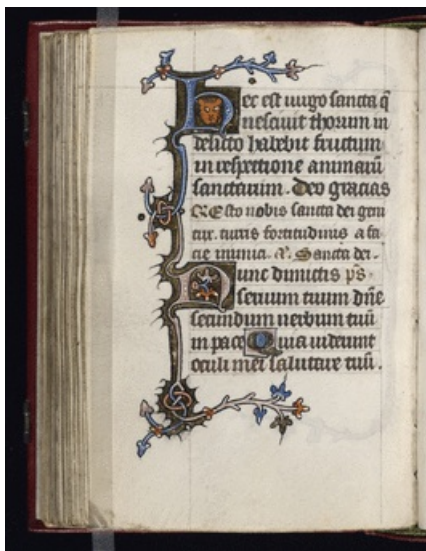 Hec est uirgo sancta q̄
nesciuit thorum in
delicto habebit fructum
in respectione animarū
sanctarum. Deo gracias
R̃ Esto nobis sancta dei geni
trix. turris fortitudinis a fa
cie inimici. A. Sancta dei.
Nunc dimittis ps̄
seruum tuum dn̄e
secundum uerbum tuū
in pace Quia uiderunt
oculi mei salutare tuū.